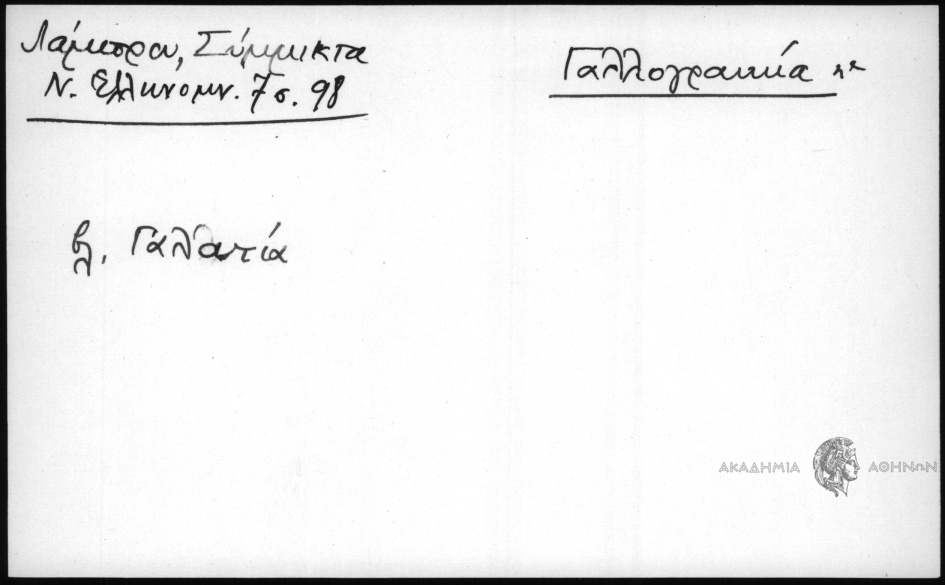 Λάμπρου, Σύμμικτα
Ν. Ελληνομν. 7 σ. 98
Γαλλογραικία
βλ. Γαλατία
ΑΚΑΔΗΜΙΑ ΑΘΗΝΩΝ